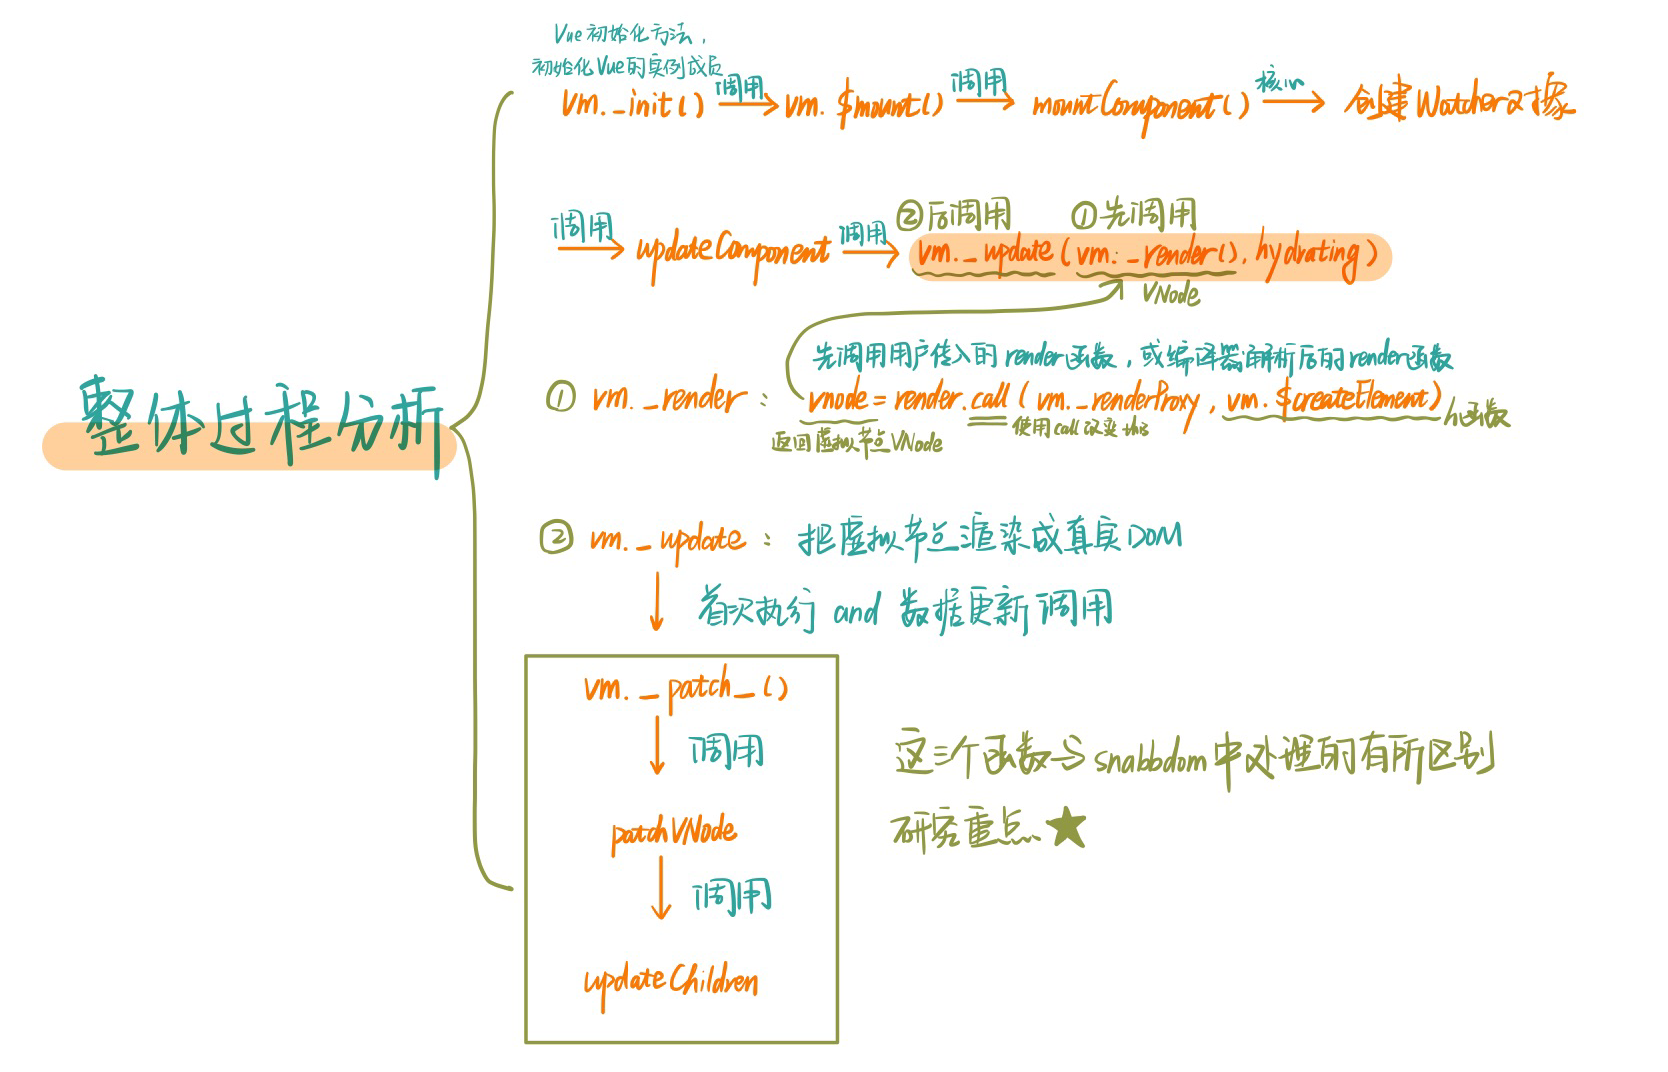 整体过程分析
Vue初始化方法,
初始化Vue的实例成员
vm._init() 调用 vm.$mount() 调用 mountComponent() 核心 创建Watcher对象
调用 updateComponent 调用 ②后调用 ①先调用
vm._update(vm._render(), hydrating)
VNode
先调用用户传入的render函数,或编译器解析后的render函数
① vm._render: vnode = render.call(vm._renderProxy, vm.$createElement) h函数
返回虚拟节点VNode 使用call改变this
② vm._update: 把虚拟节点渲染成真实DOM
首次执行 and 数据更新调用
vm.__patch__()
调用
patchVNode
调用
updateChildren
这三个函数与snabbdom中处理的有所区别
研究重点★